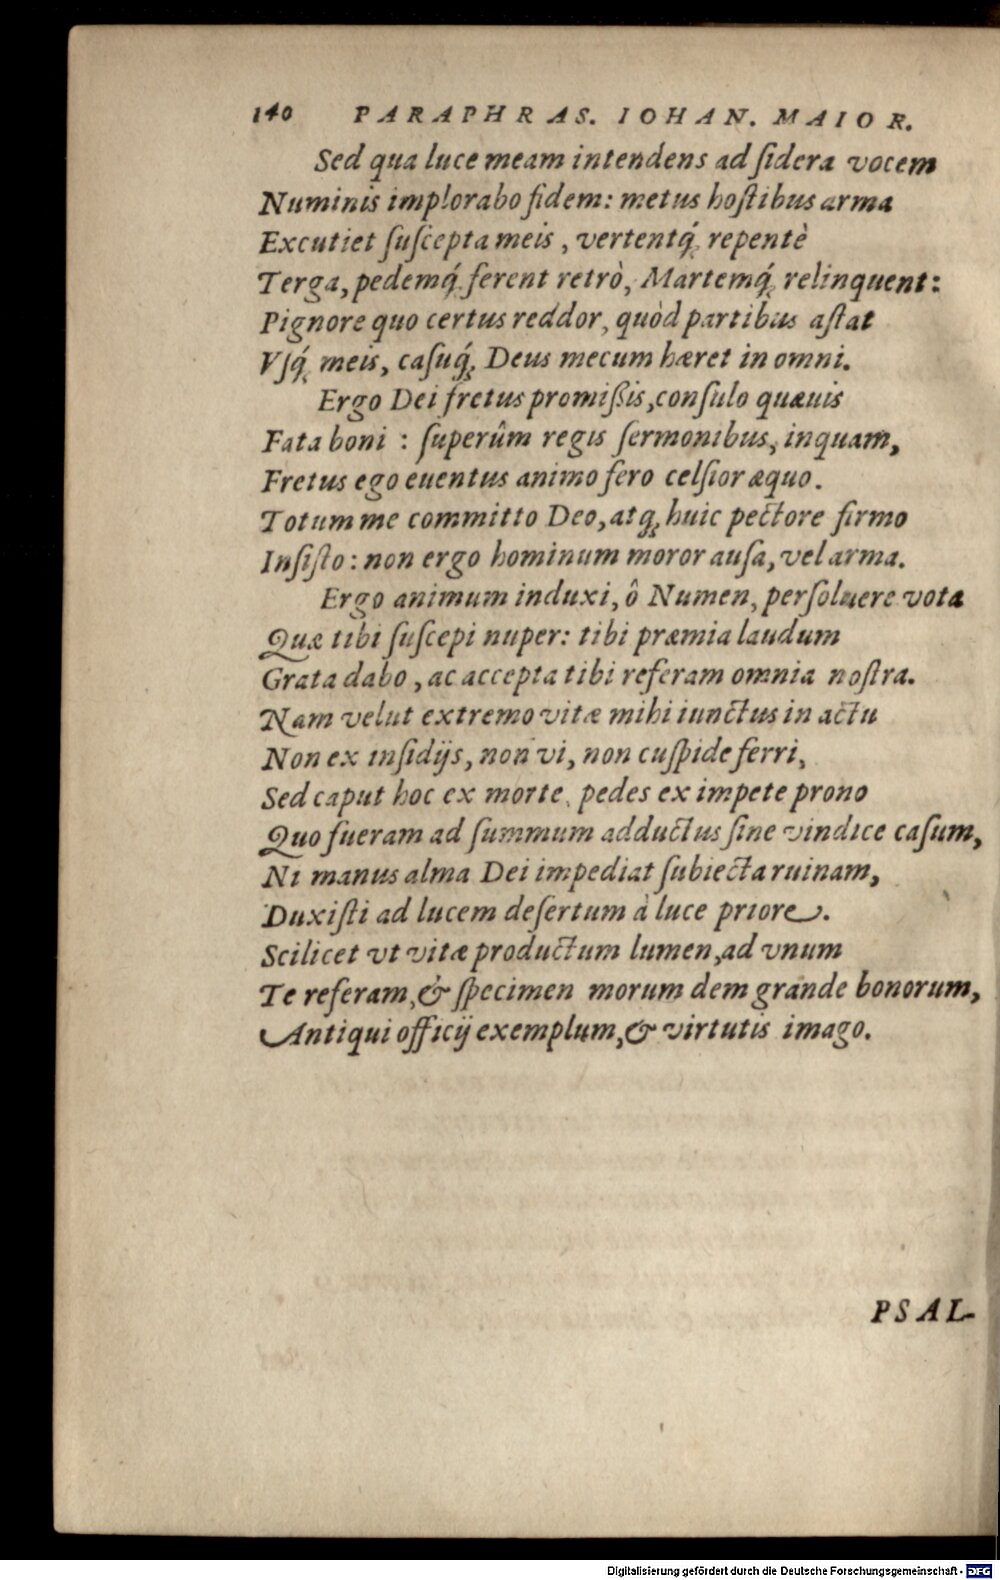 140 PARAPHRAS. IOHAN. MAIOR.
Sed qua luce meam intendens ad ſidera vocem
Numinis implorabo fidem: metus hoſtibus arma
Excutiet ſuſcepta meis, vertentq́; repentè
Terga, pedemq́; ferent retrò, Martemq́; relinquent:
Pignore quo certus reddor, quòd partibus aſtat
Vſq́; meis, caſuq́; Deus mecum hæret in omni.
Ergo Dei fretus promiſsis, conſulo quæuis
Fata boni : ſuperûm regis ſermonibus, inquam,
Fretus ego euentus animo fero celſior æquo.
Totum me committo Deo, atq; huic pectore firmo
Inſiſto: non ergo hominum moror auſa, vel arma.
Ergo animum induxi, ô Numen, perſoluere vota
Quæ tibi ſuſcepi nuper: tibi præmia laudum
Grata dabo, ac accepta tibi referam omnia noſtra.
Nam velut extremo vitæ mihi iunctus in actu
Non ex inſidijs, non vi, non cuſpide ferri,
Sed caput hoc ex morte, pedes ex impete prono
Quo fueram ad ſummum adductus ſine vindice caſum,
Ni manus alma Dei impediat ſubiecta ruinam,
Duxiſti ad lucem deſertum à luce priore.
Scilicet vt vitæ productum lumen, ad vnum
Te referam, & ſpecimen morum dem grande bonorum,
Antiqui officij exemplum, & virtutis imago.
PSAL-
Digitalisierung gefördert durch die Deutsche Forschungsgemeinschaft - DFG